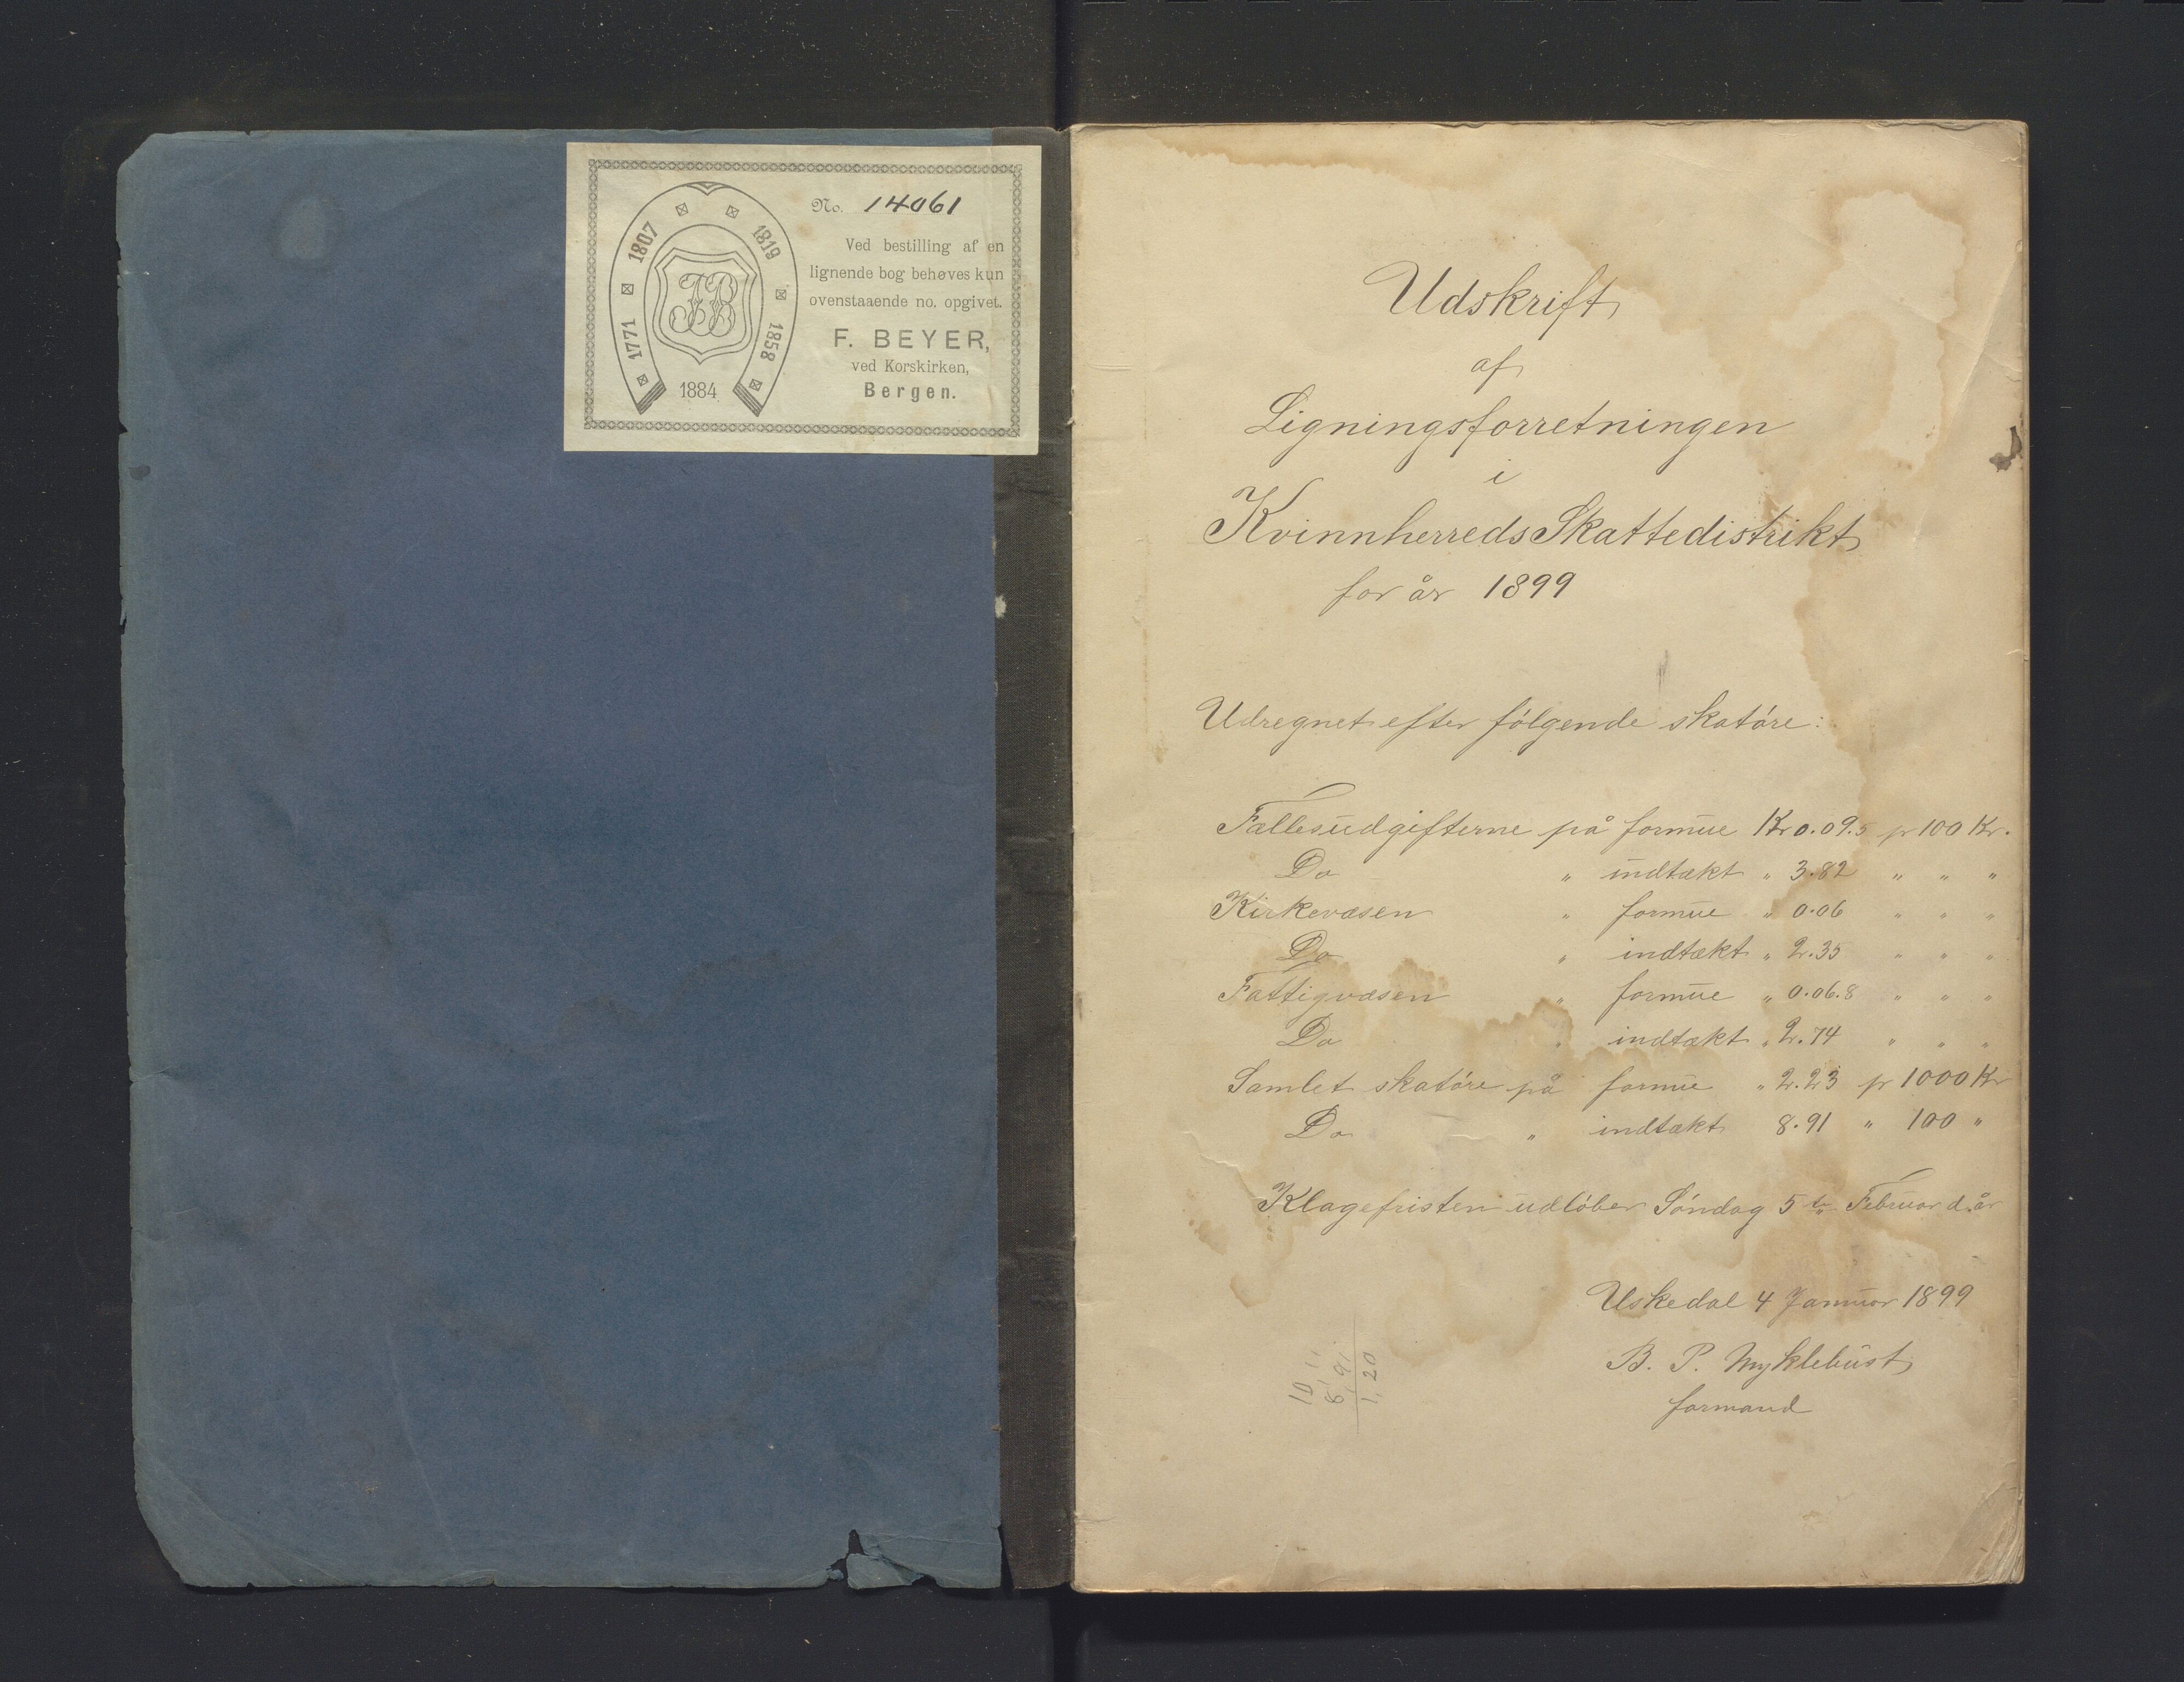 No. 14061
Ved bestilling af en
lignende bog behøves kun
ovenstaaende no. opgivet.
F. BEYER,
ved Korskirken,
Bergen.
1771 1807 1819 1858
1884
FB
Udskrift
af
Ligningsforretningen
i
Kvinnherreds Skattedistrikt
for år 1899
Udregnet efter følgende skatøre:
Fællesudgifterne på formue Kr 0.09.5 pr 100 Kr.
Do " indtækt " 3.82 " " "
Kirkevæsen " formue " 0.06 " " "
Do " indtækt " 2.35 " " "
Fattigvæsen " formue " 0.06.8 " " "
Do " indtækt " 2.74 " " "
Samlet skatøre på formue " 2.23 pr 1000 Kr
Do " indtækt 8.91 " 100 "
Klagefristen udløber Søndag 5te Februar d. år
Uskedal 4 Januar 1899
B. P. Myklebust
formand
10,11
8,91
1,20